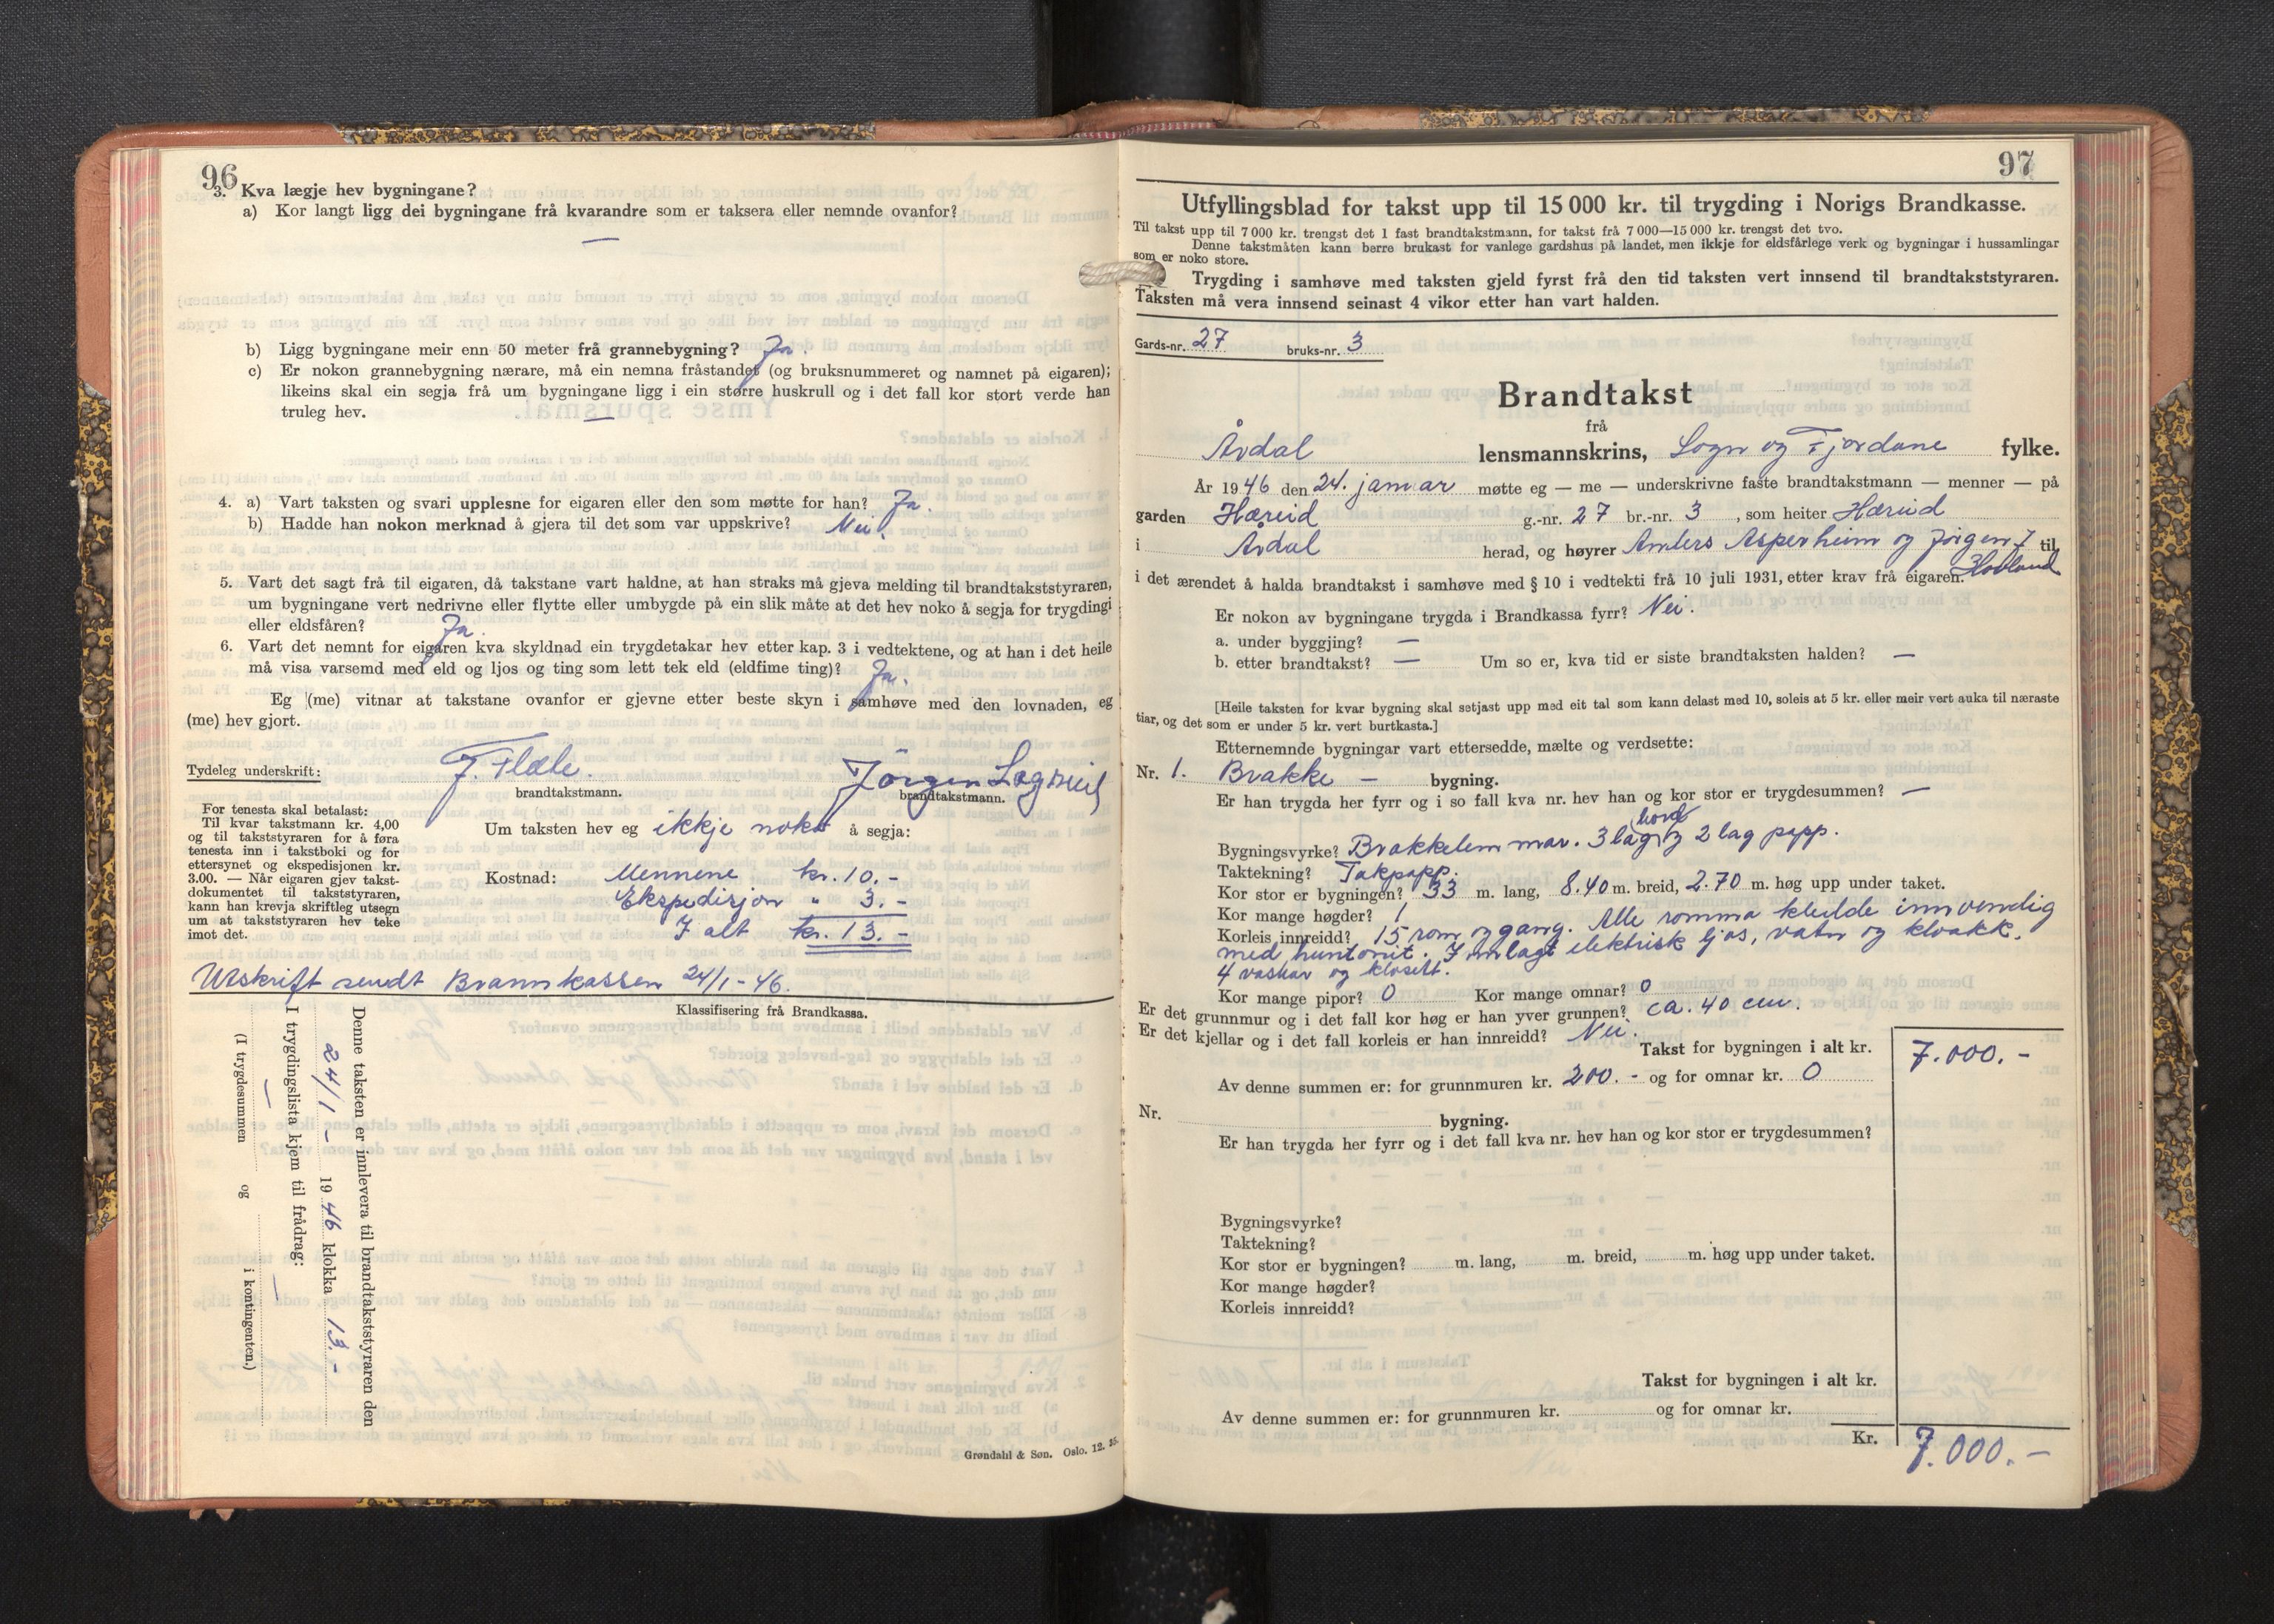 96
3. Kva lægje hev bygningane?
a) Kor langt ligg dei bygningane frå kvarandre som er taksera eller nemnde ovanfor?
—
b) Ligg bygningane meir enn 50 meter frå grannebygning? Ja.
c) Er nokon grannebygning nærare, må ein nemna fråstandet (og bruksnummeret og namnet på eigaren);
likeins skal ein segja frå um bygningane ligg i ein større huskrull og i det fall kor stort verde han
truleg hev. —
4. a) Vart taksten og svari upplesne for eigaren eller den som møtte for han? Ja.
b) Hadde han nokon merknad å gjera til det som var uppskrive? Nei.
5. Vart det sagt frå til eigaren, då takstane vart haldne, at han straks må gjeva melding til brandtakststyraren,
um bygningane vert nedrivne eller flytte eller umbygde på ein slik måte at det hev noko å segja for trygdingi
eller eldsfåren? Ja.
6. Vart det nemnt for eigaren kva skyldnad ein trygdetakar hev etter kap. 3 i vedtektene, og at han i det heile
må visa varsemd med eld og ljos og ting som lett tek eld (eldfime ting)? Ja.
Eg (me) vitnar at takstane ovanfor er gjevne etter beste skyn i samhøve med den lovnaden, eg
(me) hev gjort.
Tydeleg underskrift: J. Flæle. Jörgen
brandtakstmann. brandtakstmann.
For tenesta skal betalast:
Til kvar takstmann kr. 4,00
og til takststyraren for å føra
tenesta inn i takstboki og for
ettersynet og ekspedisjonen kr.
3.00. — Når eigaren gjev takst-
dokumentet til takststyraren,
kann han krevja skriftleg utsegn
um at takststyraren hev teke
imot det.
Um taksten hev eg ikkje noko å segja:
Kostnad: Mennene kr. 10.-
Ekspedisjon " 3.-
I alt kr. 13.-
Utskrift sendt Brannkassen 24/1-46.
Klassifisering frå Brandkassa.
Denne taksten er innlevera til brandtakststyraren den
24/1 - 1946 klokka 13.-
I trygdingslista kjem til frådrag:
— —
(I trygdesummen og i kontingenten.)
Grøndahl & Søn. Oslo. 12. 35.
97
Utfyllingsblad for takst upp til 15 000 kr. til trygding i Norigs Brandkasse.
Til takst upp til 7 000 kr. trengst det 1 fast brandtakstmann, for takst frå 7 000—15 000 kr. trengst det tvo.
Denne takstmåten kann berre brukast for vanlege gardshus på landet, men ikkje for eldsfårlege verk og bygningar i hussamlingar
som er noko store.
Trygding i samhøve med taksten gjeld fyrst frå den tid taksten vert innsend til brandtakststyraren.
Taksten må vera innsend seinast 4 vikor etter han vart halden.
Gards-nr. 27 bruks-nr. 3
Brandtakst
frå
Årdal lensmannskrins, Sogn og Fjordane fylke.
År 1946 den 24. januar møtte eg — me — underskrivne faste brandtakstmann — menner — på
garden Hæreid g.-nr. 27 br.-nr. 3, som heiter Hæreid
i Årdal herad, og høyrer Anders Asperheim og Jörgen J. til
Hovland
i det ærendet å halda brandtakst i samhøve med § 10 i vedtekti frå 10 juli 1931, etter krav frå eigaren.
Er nokon av bygningane trygda i Brandkassa fyrr? Nei.
a. under byggjing? —
b. etter brandtakst? — Um so er, kva tid er siste brandtaksten halden? —
[Heile taksten for kvar bygning skal setjast upp med eit tal som kann delast med 10, soleis at 5 kr. eller meir vert auka til næraste
tiar, og det som er under 5 kr. vert burtkasta.]
Etternemnde bygningar vart ettersedde, mælte og verdsette:
Nr. 1. Brakke - bygning.
Er han trygda her fyrr og i so fall kva nr. hev han og kor stor er trygdesummen? —
bord
Bygningsvyrke? Brakkelemmar. 3 lag og 2 lag papp.
Taktekning? Takpapp.
Kor stor er bygningen? 33 m. lang, 8.40 m. breid, 2.70 m. høg upp under taket.
Kor mange høgder? 1
Korleis innreidd? 15 rom og gang. Alle romma kledde innvendig
med huntonit. Innlagt elektrisk ljos, vatn og kloakk.
4 vaskar og klosett.
Kor mange pipor? 0 Kor mange omnar? 0
Er det grunnmur og i det fall kor høg er han yver grunnen? ca. 40 cm.
Er det kjellar og i det fall korleis er han innreidd? Nei.
Takst for bygningen i alt kr. 7.000.-
Av denne summen er: for grunnmuren kr. 200.- og for omnar kr. 0
Nr. bygning.
Er han trygda her fyrr og i det fall kva nr. hev han og kor stor er trygdesummen?
Bygningsvyrke?
Taktekning?
Kor stor er bygningen? m. lang, m. breid, m. høg upp under taket.
Kor mange høgder?
Korleis innreidd?
Takst for bygningen i alt kr.
Av denne summen er: for grunnmuren kr. og for omnar kr.
Kr. 7.000.-